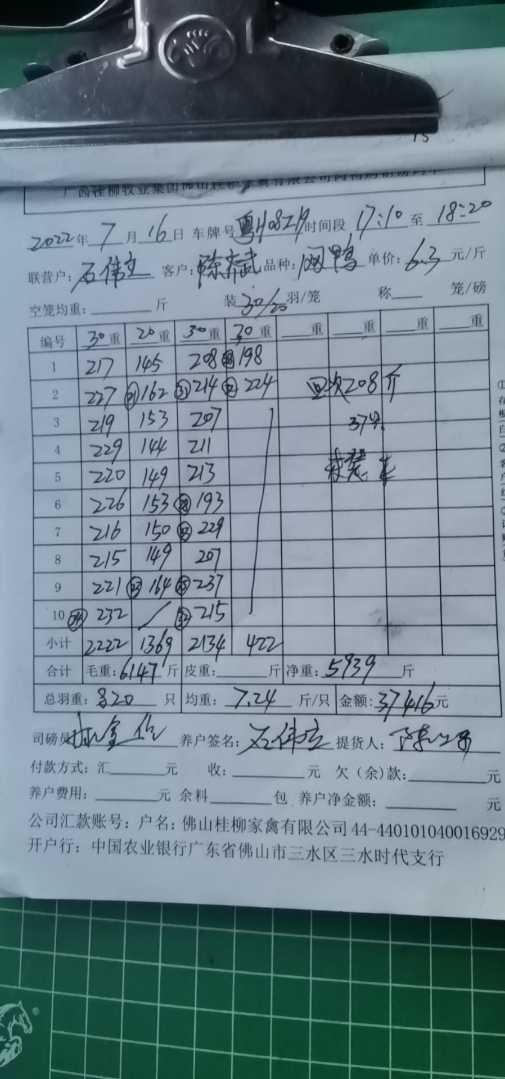 2022年 7 月 16 日 车牌号 时间段 17:10 至 18:20
联营户: 石伟立 客户: 品种: 单价: 6.3 元/斤
空笼均重: 斤 装 30/20 羽/笼 称 笼/磅
编号 30重 20重 30重 30重 重 重 重 重
1 217 145 208 198
2 227 162 214 224 四次208斤
3 219 153 207
4 229 144 211
5 220 149 213
6 226 153 193
7 216 150 229
8 215 149 207
9 221 164 237
10 232 215
小计 2222 1369 2134 422
合计 毛重: 6147 斤 皮重: 斤 净重: 5939 斤
总羽重: 820 只 均重: 7.24 斤/只 金额: 37416 元
司磅员 养户签名: 石伟立 提货人:
付款方式: 汇 元 收: 元 欠(余)款: 元
养户费用: 元 余料 包 养户净金额: 元
公司汇款账号: 户名: 佛山桂柳家禽有限公司 44-440101040016929
开户行: 中国农业银行广东省佛山市三水区三水时代支行